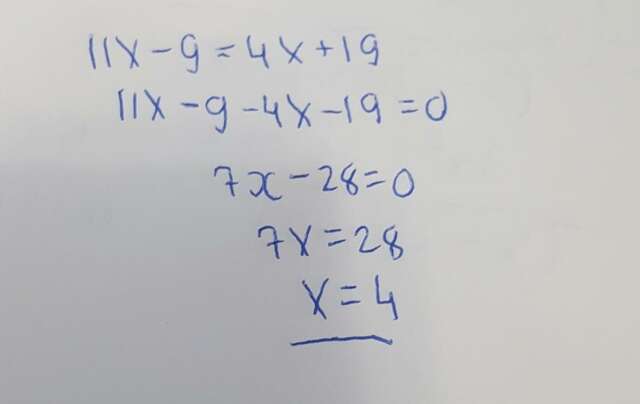 11x-9=4x+19
11x-9-4x-19=0
7x-28=0
7x=28
x=4